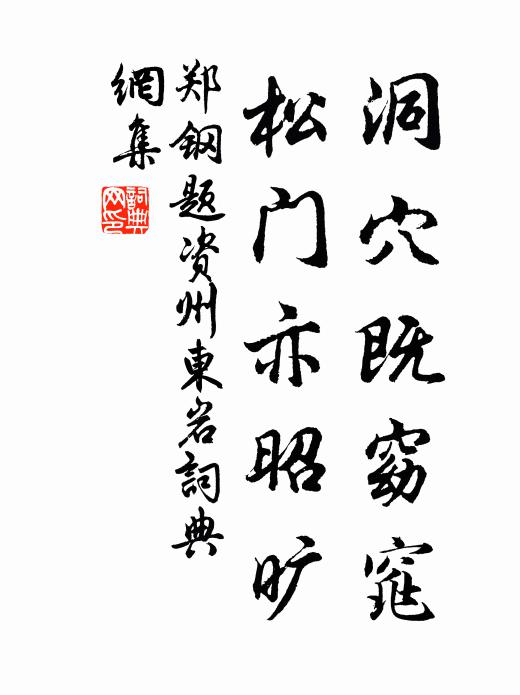 洞穴既窈窕
松门亦昭旷
郑钢题资州東岩詞典
網集
詞典
网印